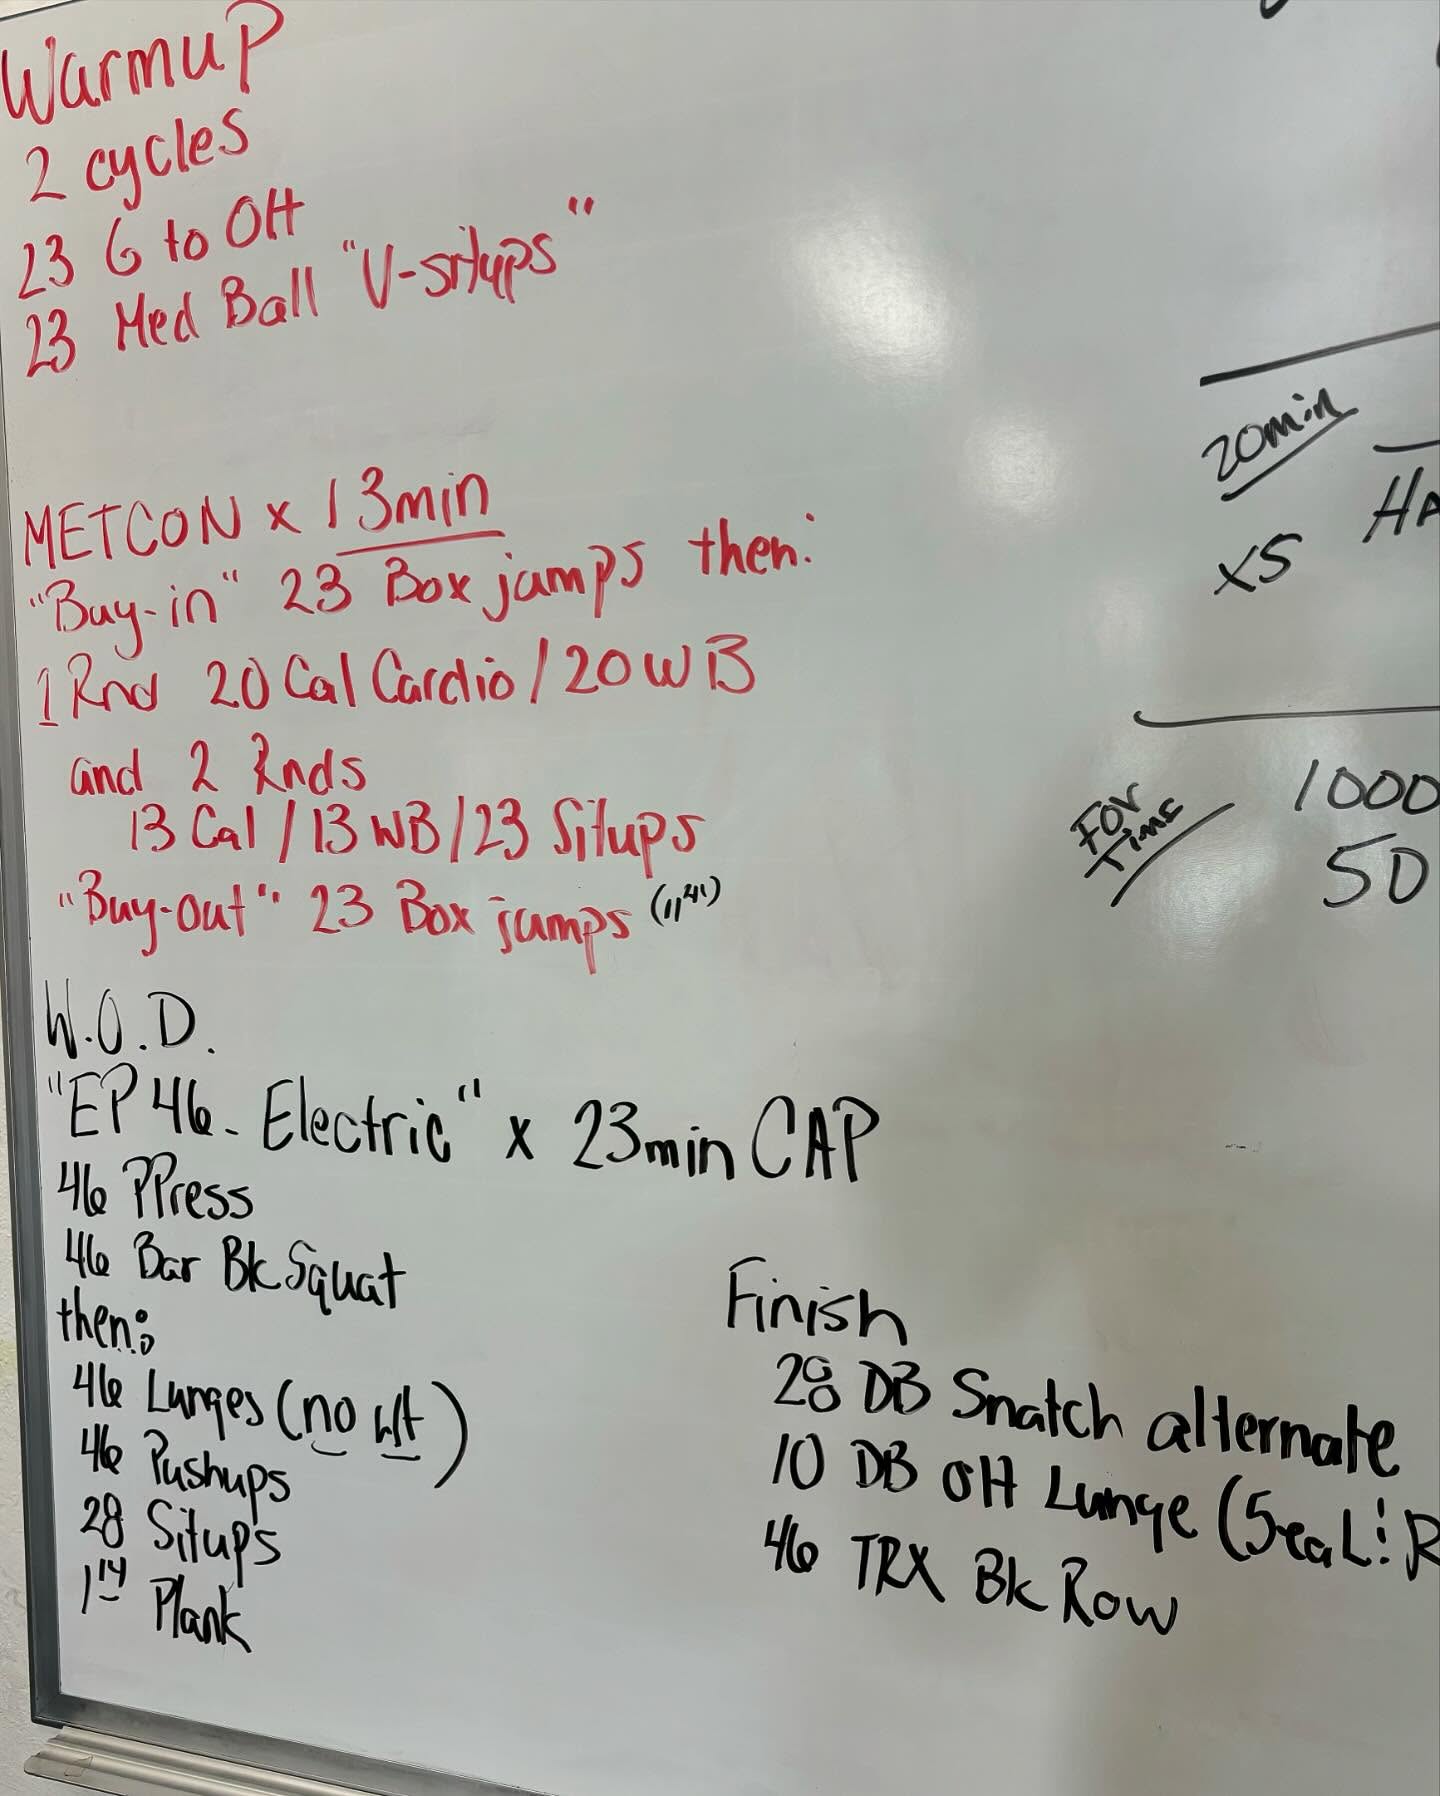 Warmup
2 cycles
23 G to OH
23 Med Ball "V-situps"
METCON x 13min
"Buy-in" 23 Box jumps then:
1 Rnd 20 Cal Cardio / 20 WB
and 2 Rnds
13 Cal / 13 WB / 23 Situps
"Buy-out" 23 Box jumps (11:41)
W.O.D.
"EP 46 - Electric" x 23min CAP
46 PPress
46 Bar Bk Squat
then:
46 Lunges (no wt)
46 Pushups
28 Situps
1:14 Plank
Finish
28 DB Snatch alternate
10 DB OH Lunge (5ea L! R
46 TRX Bk Row
20min
x5 HA
FOR TIME
1000
50